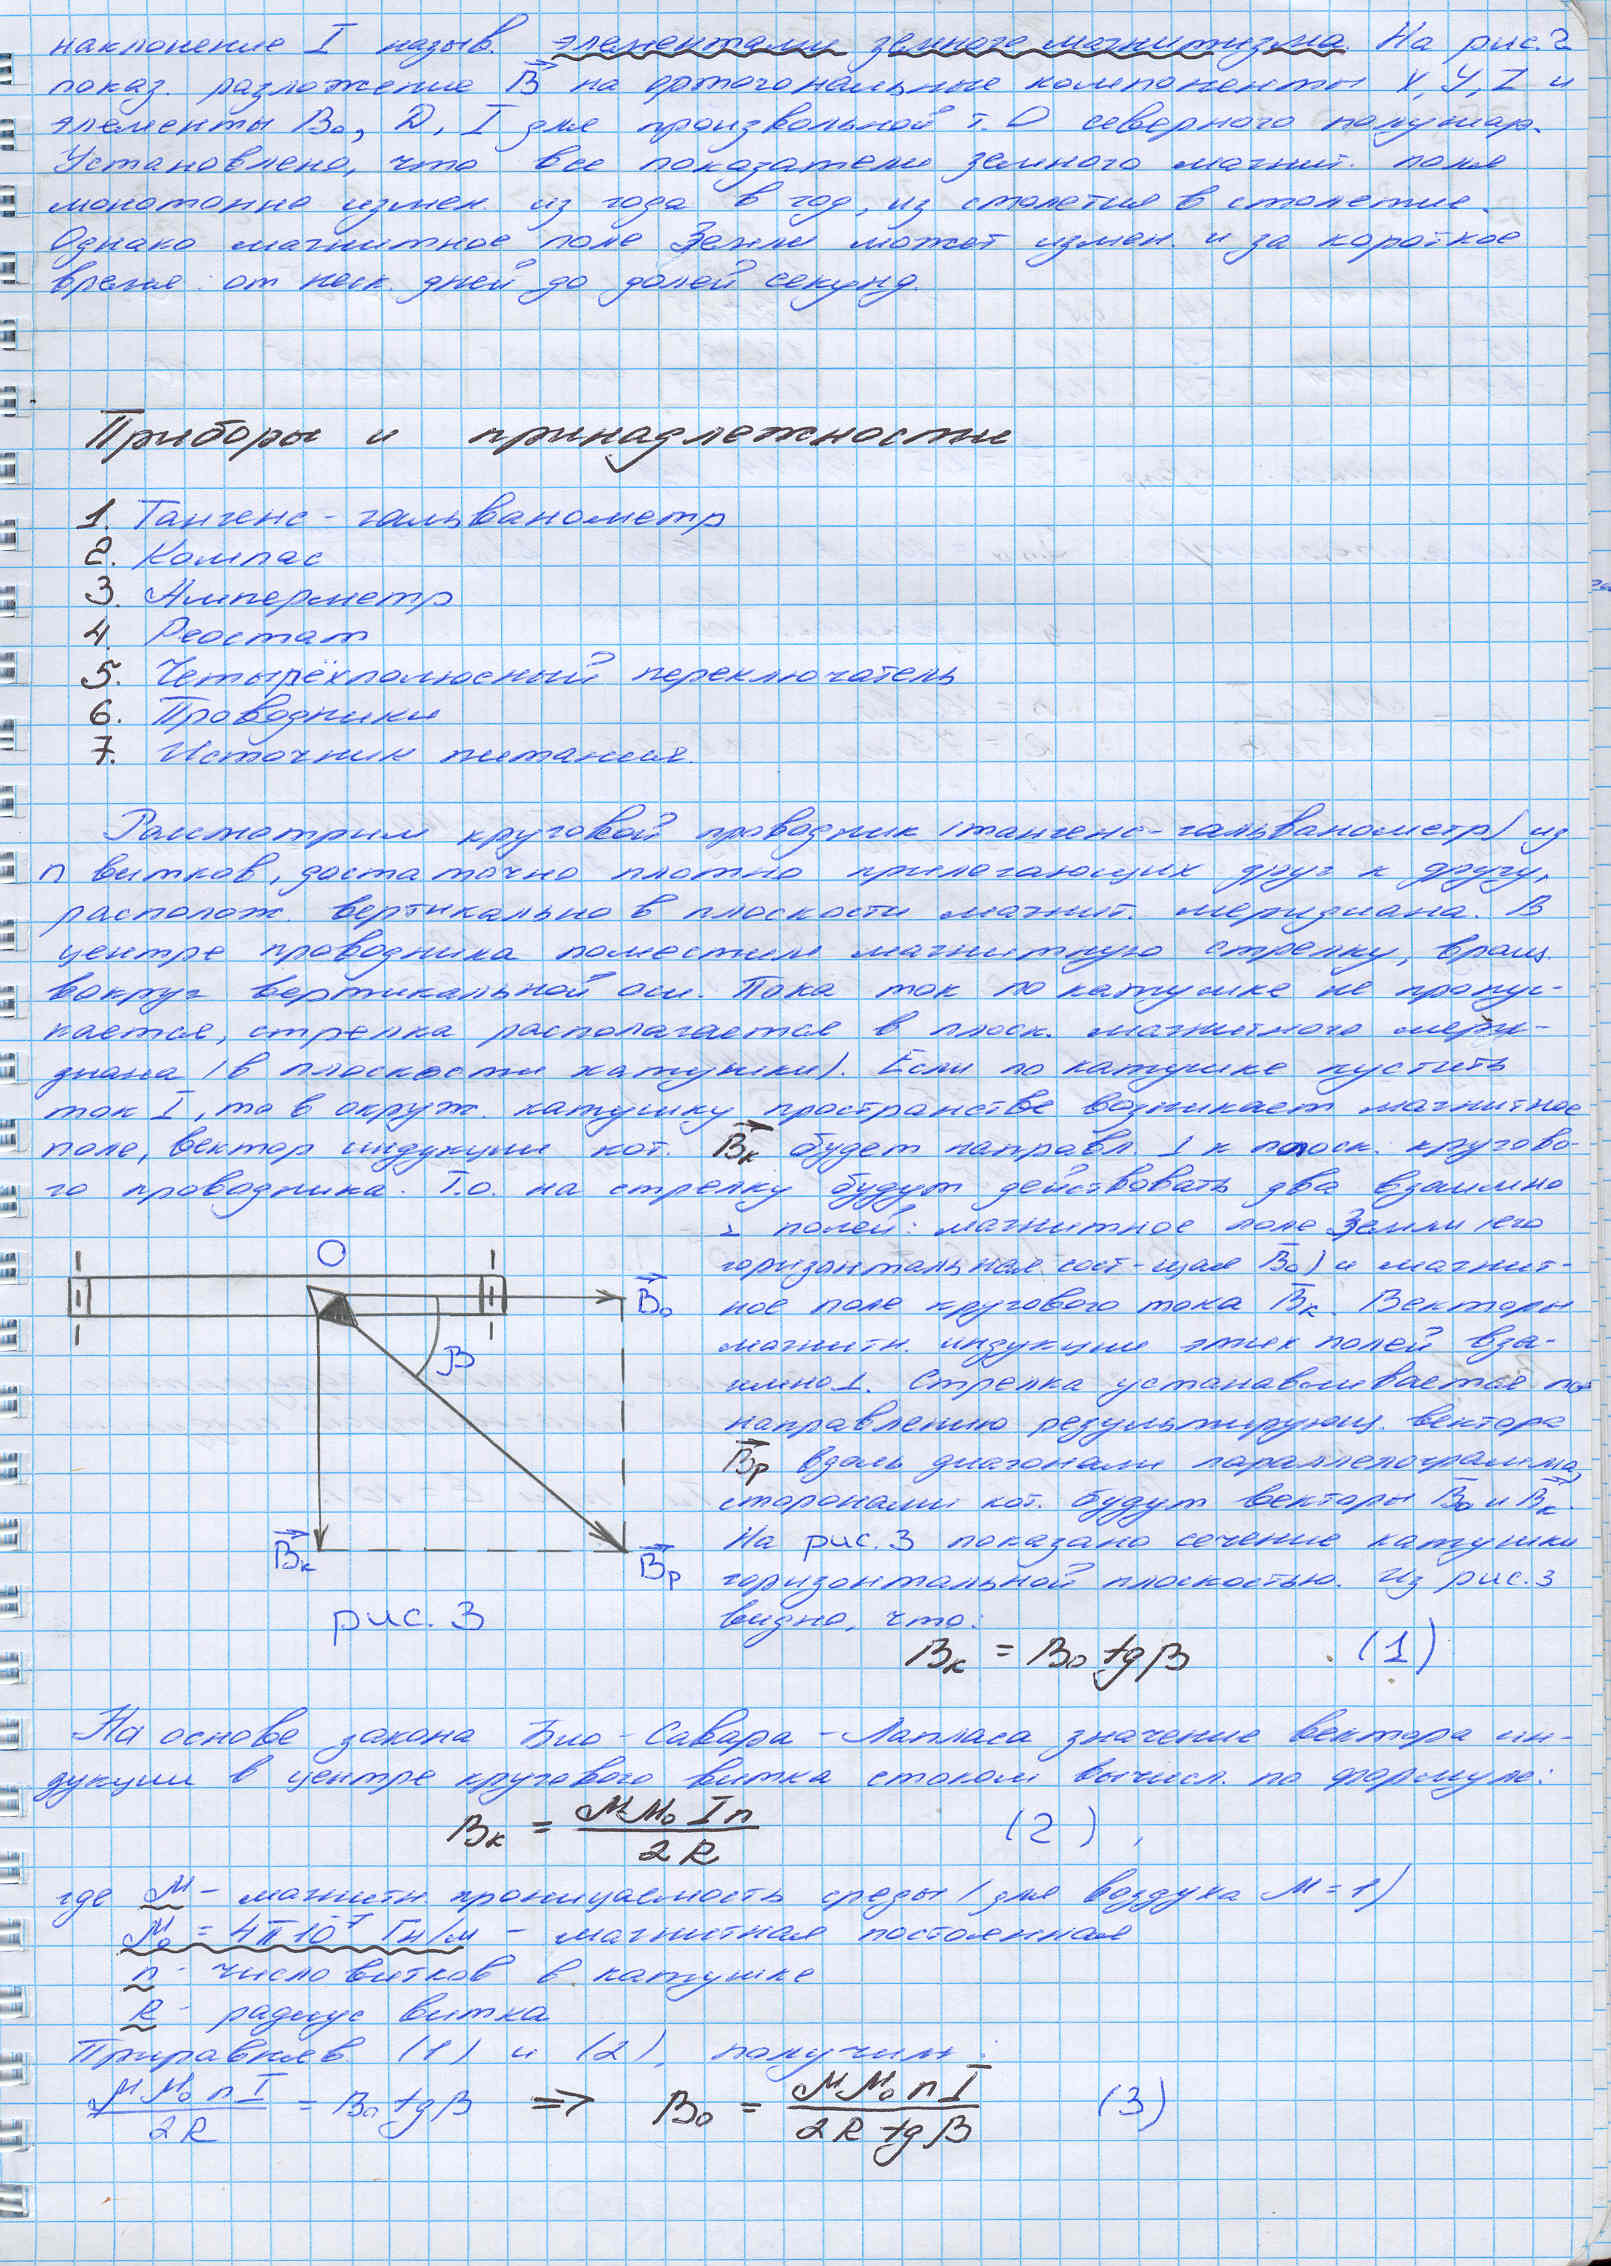 наклонение I назыв. элементами земного магнитизма. На рис. 2
показ. разложение B на ортогональные компоненты X, Y, Z и
элементы B₀, D, I для произвольной т. O северного полушар.
Установлено, что все показатели земного магнит. поля
монотонно измен. из года в год, из столетия в столетие.
Однако магнитное поле Земли может измен. и за короткое
время: от неск. дней до долей секунд.
Приборы и принадлежности
1. Тангенс-гальванометр
2. Компас
3. Амперметр
4. Реостат
5. Четырёхполюсный переключатель
6. Проводники
7. Источник питания.
Рассмотрим круговой проводник (тангенс-гальванометр) из
n витков, достаточно плотно прилегающих друг к другу,
располож. вертикально в плоскости магнит. меридиана. В
центре проводника поместим магнитную стрелку, вращ.
вокруг вертикальной оси. Пока ток по катушке не пропус-
кается, стрелка располагается в плоск. магнитного мери-
диана (в плоскости катушки). Если по катушке пустить
ток I, то в окруж. катушку пространстве возникает магнитное
поле, вектор индукции кот. Bк будет направл. ⊥ к плоск. кругово-
го проводника. Т.о. на стрелку будут действовать два взаимно
⊥ полей: магнитное поле Земли (его
горизонтальная сост-щая B₀) и магнит-
ное поле кругового тока Bк. Векторы
магнитн. индукции этих полей вза-
имно ⊥. Стрелка устанавливается по
направлению результирующ. вектора
Bр вдоль диагонали параллелограмма,
сторонами кот. будут векторы B₀ и Bк.
На рис. 3 показано сечение катушки
горизонтальной плоскостью. Из рис. 3
видно, что:
O
B₀
β
Bк
Bр
рис. 3
Bк = B₀ tgβ (1)
На основе закона Био-Савара-Лапласа значение вектора ин-
дукции в центре кругового витка стоком вычисл. по формуле:
Bк = μμ₀In / 2R (2),
где μ - магнитн. проницаемость среды (для воздуха μ = 1)
μ₀ = 4π10⁻⁷ Гн/м - магнитная постоянная
n - число витков в катушке
R - радиус витка
Приравняв (1) и (2), получим:
μμ₀nI / 2R = B₀ tgβ ⇒ B₀ = μμ₀nI / 2R tgβ (3)